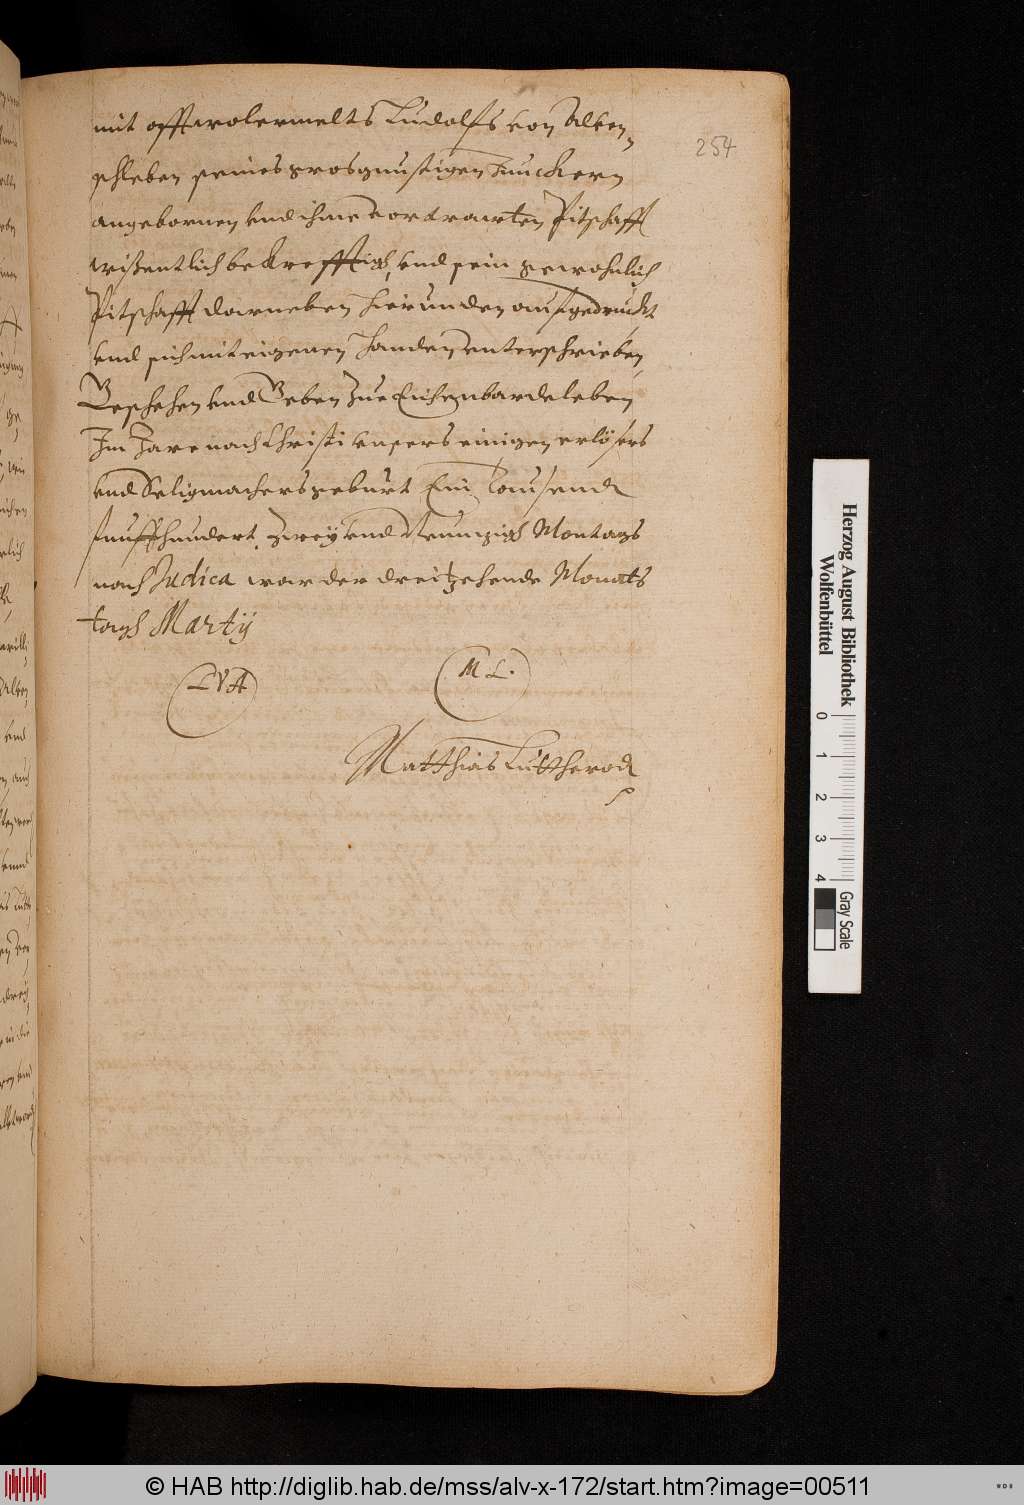 mit offtwolermelts Ludolfs von Alven,
schleben seines grosgunstigen Junckern
angebornen vnd ihme vortrawten Pitschafft
wißentlich bekrefftigh, vnd sein gewohnlich
Pitschafft darneben hierunden aufgedruckt
vnd sich mit eigenen handen unterschrieben,
Geschehen vnd Geben zue Eichenbardeleben
Im Jare nach Christi vnsers einigen erlösers
vnd Seligmachers geburt Ein Tausendt
funffhundert, zwey vnd Neunzigh Montags
nach Judica war der dreitzehende Monats
tagh Martij
LVA
M L.
Matthias Luttherodt
254
Herzog August Bibliothek
Wolfenbüttel
0 1 2 3 4
Gray Scale
© HAB http://diglib.hab.de/mss/alv-x-172/start.htm?image=00511